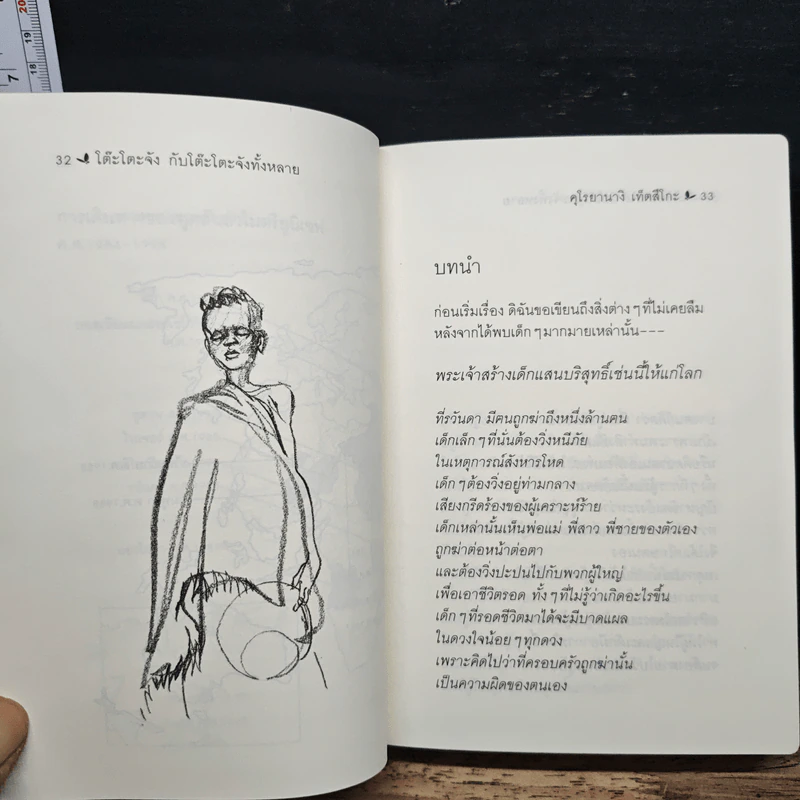 32 โต๊ะโตะจัง กับโต๊ะโตะจังทั้งหลาย
คุโรยานางิ เท็ตสึโกะ 33
บทนำ
ก่อนเริ่มเรื่อง ดิฉันขอเขียนถึงสิ่งต่างๆที่ไม่เคยลืม
หลังจากได้พบเด็กๆมากมายเหล่านั้น---
พระเจ้าสร้างเด็กแสนบริสุทธิ์เช่นนี้ให้แก่โลก
ที่รวันดา มีคนถูกฆ่าถึงหนึ่งล้านคน
เด็กเล็กๆที่นั่นต้องวิ่งหนีภัย
ในเหตุการณ์สังหารโหด
เด็กๆต้องวิ่งอยู่ท่ามกลาง
เสียงกรีดร้องของผู้เคราะห์ร้าย
เด็กเหล่านั้นเห็นพ่อแม่ พี่สาว พี่ชายของตัวเอง
ถูกฆ่าต่อหน้าต่อตา
และต้องวิ่งปะปนไปกับพวกผู้ใหญ่
เพื่อเอาชีวิตรอด ทั้งๆที่ไม่รู้ว่าเกิดอะไรขึ้น
เด็กๆที่รอดชีวิตมาได้จะมีบาดแผล
ในดวงใจน้อยๆทุกดวง
เพราะคิดไปว่าที่ครอบครัวถูกฆ่านั้น
เป็นความผิดของตนเอง
20
19
18
7